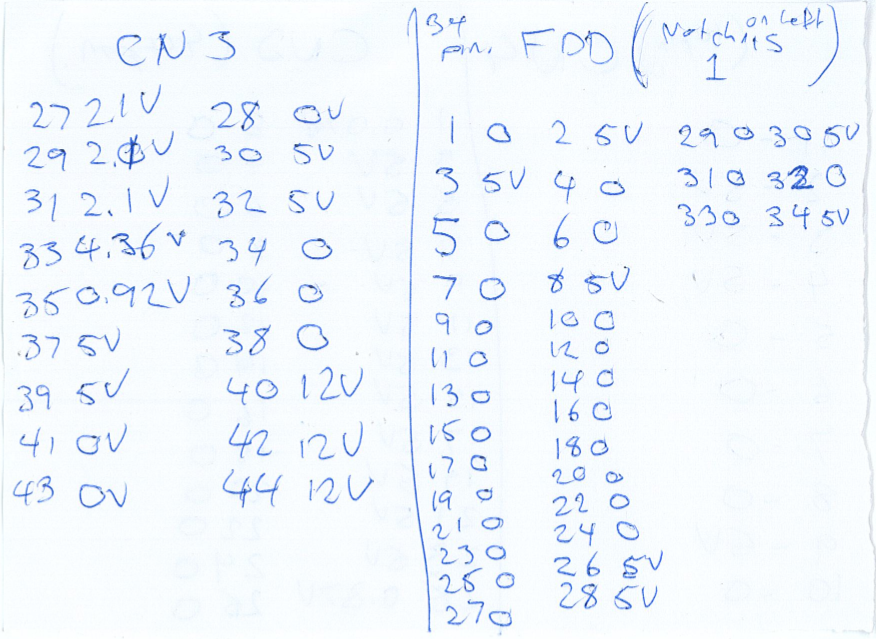 CN 3
27 2.1V 28 0V
29 2.0V 30 5V
31 2.1V 32 5V
33 4.36V 34 0
35 0.92V 36 0
37 5V 38 0
39 5V 40 12V
41 0V 42 12V
43 0V 44 12V
34 pin. FDD (Notch on left is 1)
1 0 2 5V
3 5V 4 0
5 0 6 0
7 0 8 5V
9 0 10 0
11 0 12 0
13 0 14 0
15 0 16 0
17 0 18 0
19 0 20 0
21 0 22 0
23 0 24 0
25 0 26 5V
27 0 28 5V
29 0 30 5V
31 0 32 0
33 0 34 5V